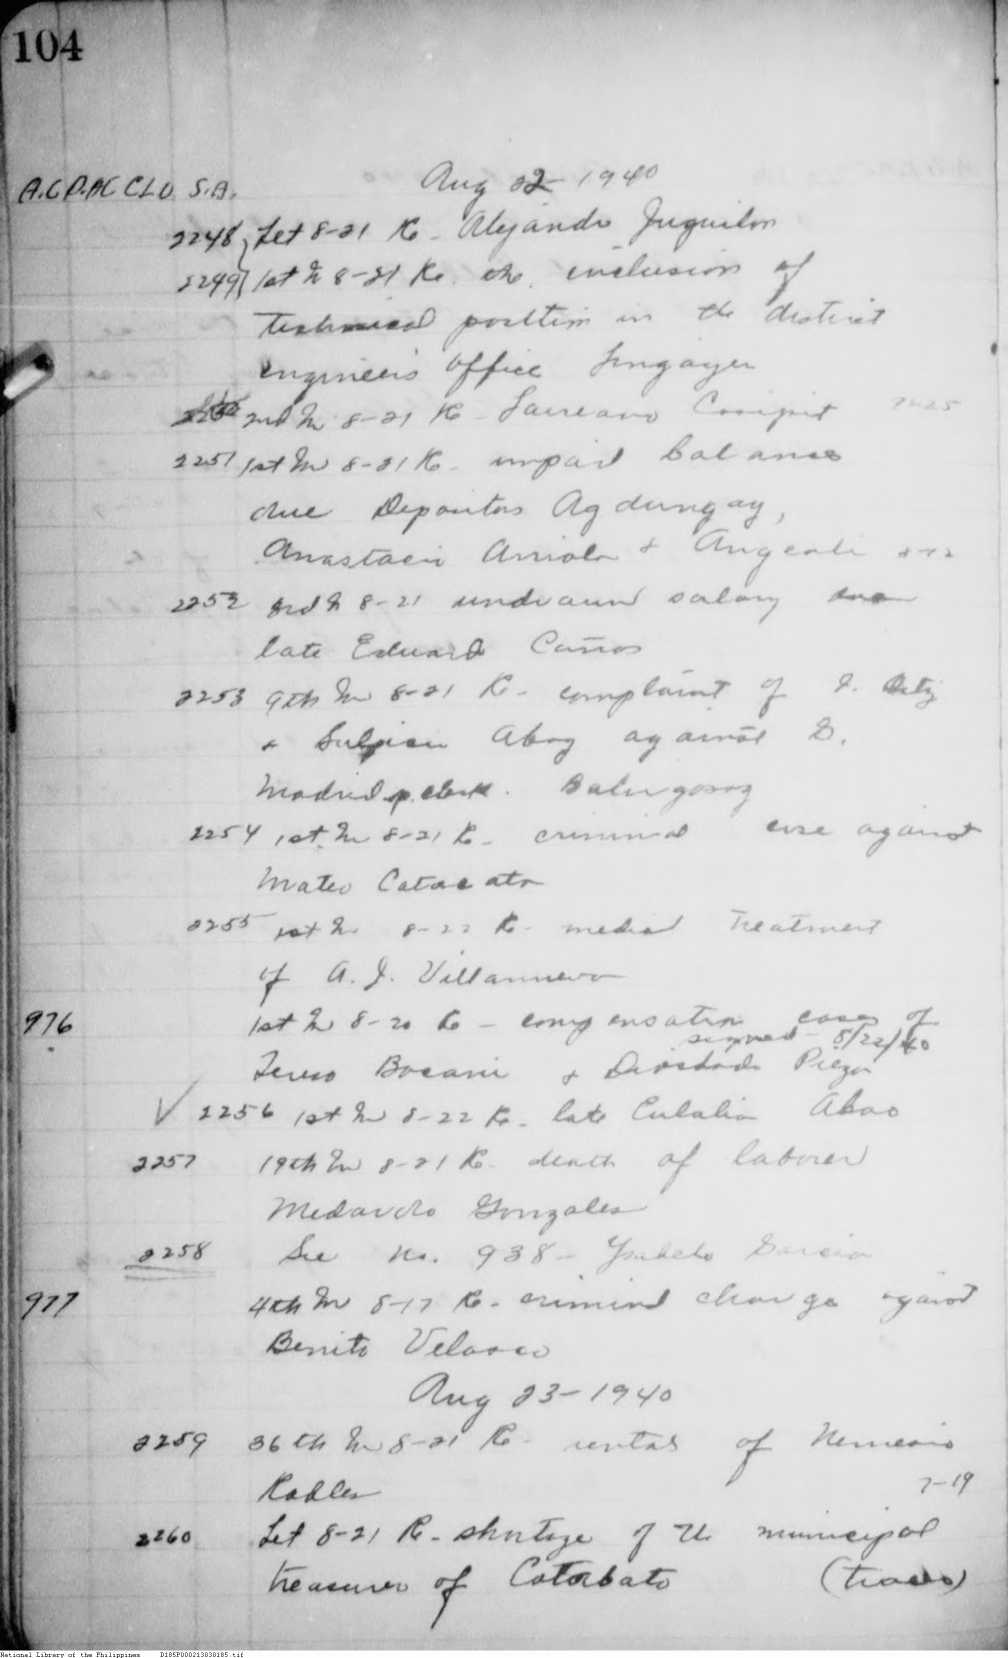 104
A.C D.AC CLO S.A.
Aug 22 - 1940
2248 Let 8-21 Re - Alejandro
2249 1st In 8-21 Re. the inclusion of
technical position in the district
engineer's office Lingayen
2nd In 8-21 Re - Laureano
2251 1st In 8-21 Re - unpaid balances
due Agdungay,
Anastacio Arriola +
2252 3rd In 8-21 undrawn salary
late Eduardo Cañas
2253 9th In 8-21 Re - complaint of
+ against
Madrid
2254 1st In 8-21 Re - criminal case against
Mateo
2255 1st In 8-22 Re - medical treatment
of A. J. Villanueva
976 1st In 8-20 Re - compensation cases of
signed - 8/22/40
+
2256 1st In 8-22 Re - late Eulalia Abao
2257 19th In 8-21 Re - death of laborer
Medardo Gonzales
2258 See No. 938 - Ysabelo Garcia
977 4th In 8-17 Re - criminal charge against
Benito Velasco
Aug 23 - 1940
2259 36th In 8-21 Re - rental of Nemesio
Robles 7-19
2260 Let 8-21 Re - shortage of the municipal
treasurer of Cotabato (trans)
National Library of the Philippines D185P000213030185.tif